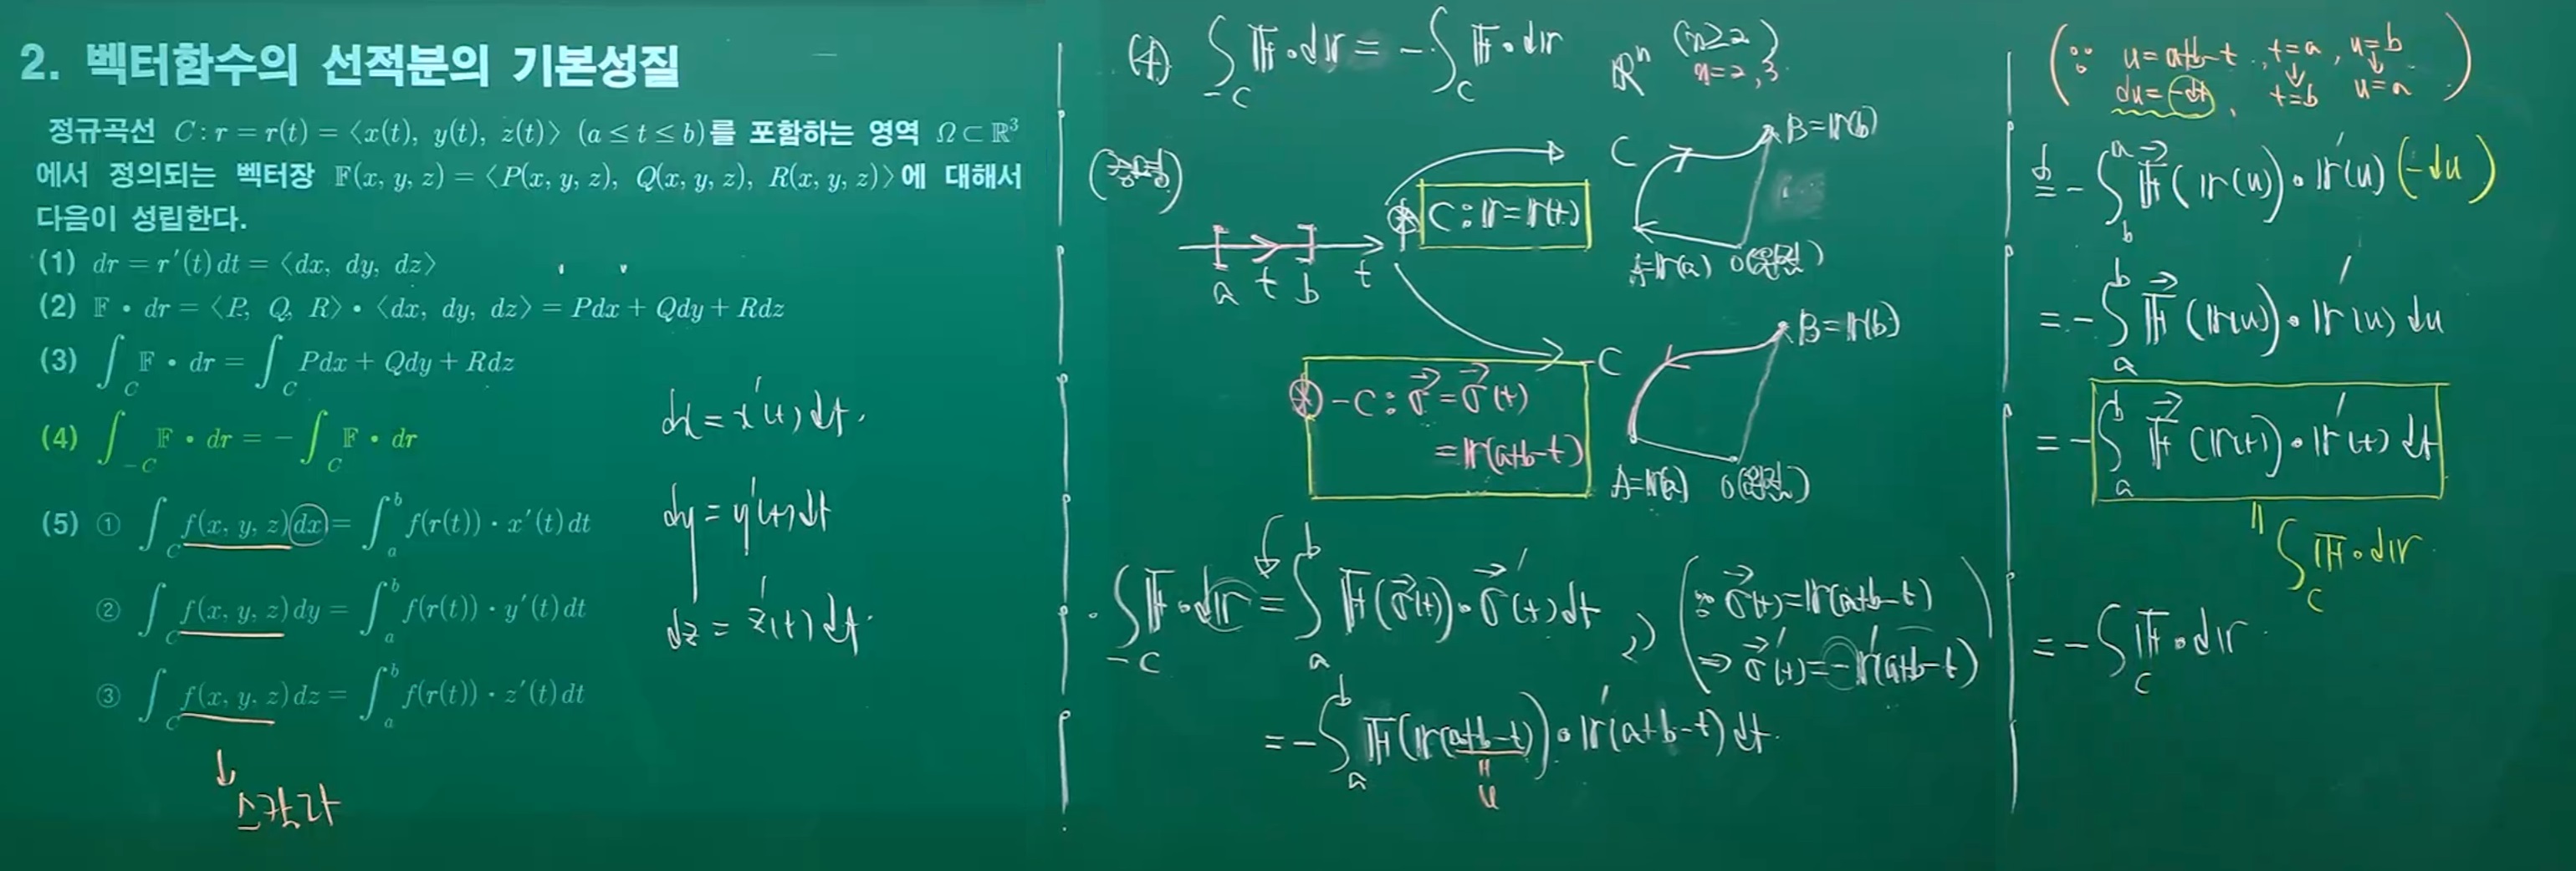 2. 벡터함수의 선적분의 기본성질
정규곡선 C : r = r(t) = ⟨x(t), y(t), z(t)⟩ (a ≤ t ≤ b)를 포함하는 영역 Ω ⊂ ℝ³
에서 정의되는 벡터장 𝔽(x, y, z) = ⟨P(x, y, z), Q(x, y, z), R(x, y, z)⟩에 대해서
다음이 성립한다.
(1) dr = r′(t) dt = ⟨dx, dy, dz⟩
(2) 𝔽 • dr = ⟨P, Q, R⟩ • ⟨dx, dy, dz⟩ = Pdx + Qdy + Rdz
(3) ∫_C 𝔽 • dr = ∫_C Pdx + Qdy + Rdz
(4) ∫_{-C} 𝔽 • dr = - ∫_C 𝔽 • dr
(5) ① ∫_C f(x, y, z) dx = ∫_a^b f(r(t)) · x′(t) dt
② ∫_C f(x, y, z) dy = ∫_a^b f(r(t)) · y′(t) dt
③ ∫_C f(x, y, z) dz = ∫_a^b f(r(t)) · z′(t) dt
↓
스칼라
dx = x′(t) dt.
dy = y′(t) dt
dz = z′(t) dt.
(4) ∫_{-C} 𝔽 • dr = - ∫_C 𝔽 • dr
ℝⁿ (n ≥ 2)
n = 2, 3
(증명)
a t b t
⊛ C : r = r(t)
C
B = r(b)
A = r(a)
⊛ -C : σ⃗ = σ⃗(t)
= r(a+b-t)
-C
B = r(b)
A = r(a)
• ∫_{-C} 𝔽 • dr = ∫_a^b 𝔽(σ⃗(t)) • σ⃗′(t) dt
(∵ σ⃗(t) = r(a+b-t)
⇒ σ⃗′(t) = - r′(a+b-t))
= - ∫_a^b 𝔽(r(a+b-t)) • r′(a+b-t) dt.
॥
u
(∵ u = a+b-t, t = a, u = b
du = -dt, ↓ t = b ↓ u = a)
= - ∫_b^a 𝔽⃗(r(u)) • r′(u) (-du)
= - ∫_a^b 𝔽⃗(r(u)) • r′(u) du
= - ∫_a^b 𝔽⃗(r(t)) • r′(t) dt
॥ ∫_C 𝔽 • dr
= - ∫_C 𝔽 • dr